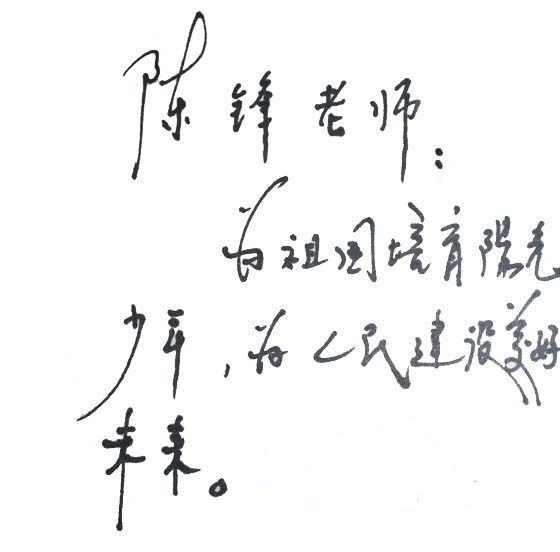 陈锋老师：
为祖国培育陽光
少年，为人民建设美好
未来。